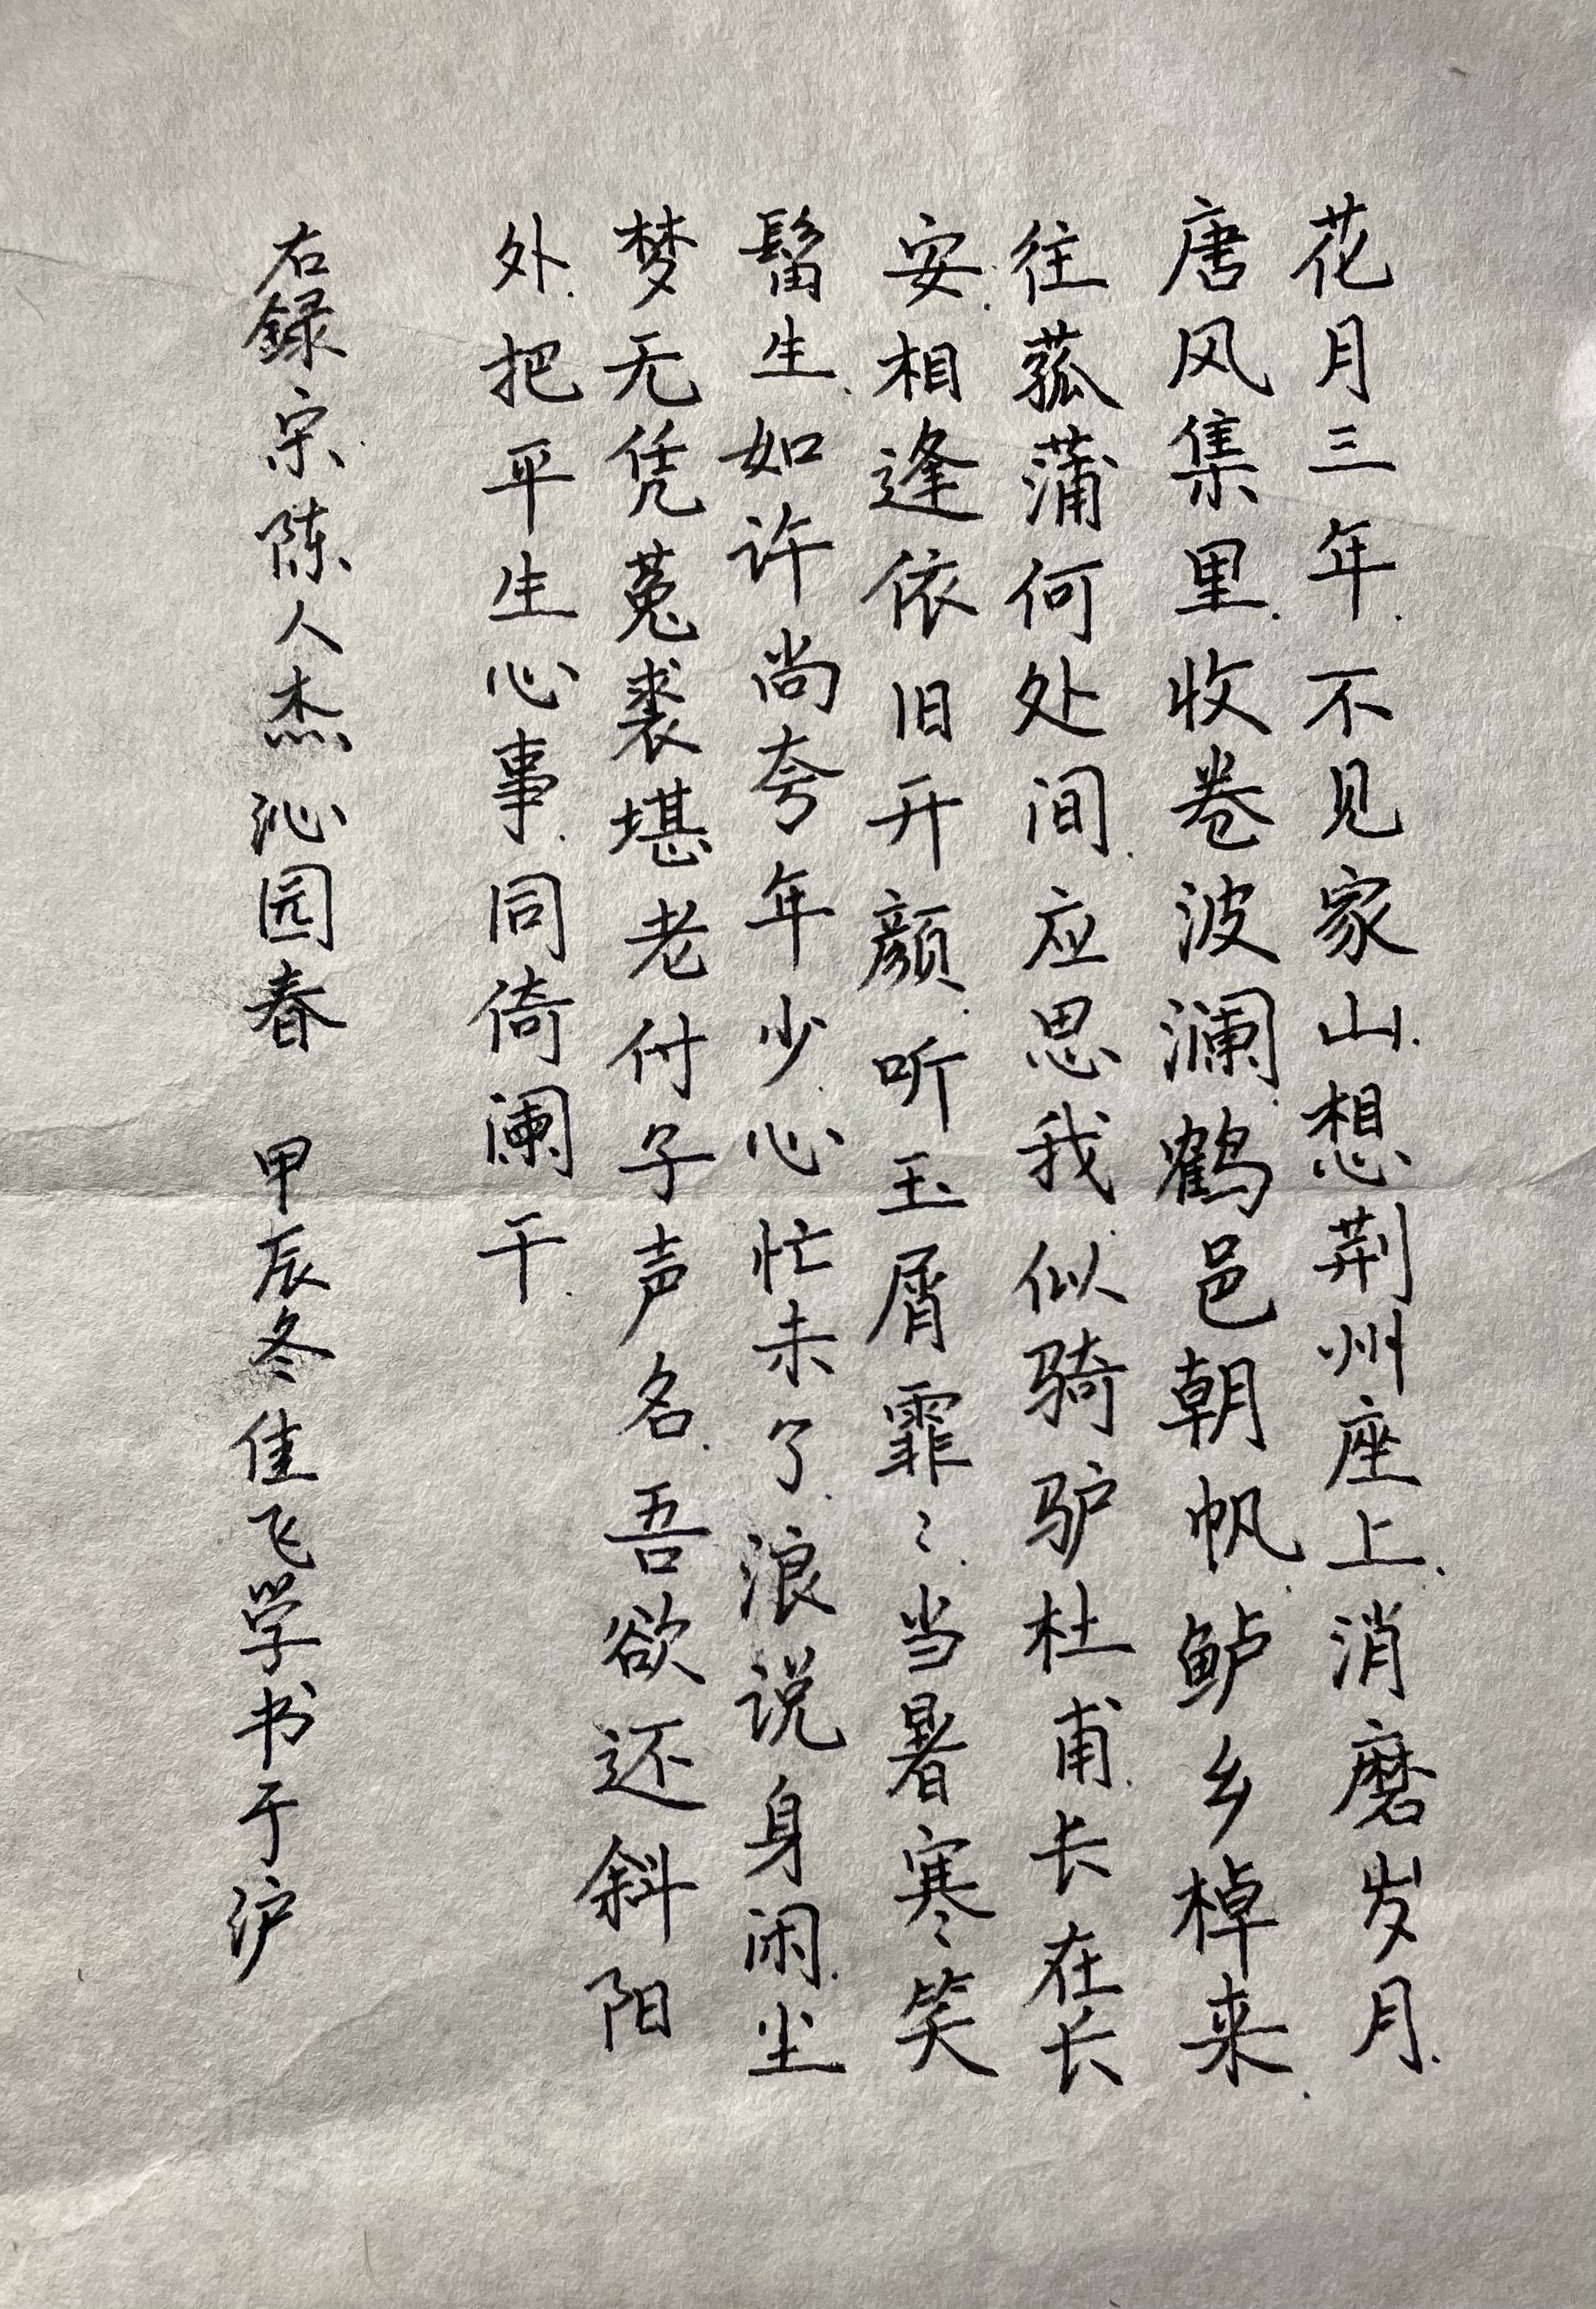 花月三年.不见家山.想荆州座上.消磨岁月.
唐风集里.收卷波澜.鹤邑朝帆.鲈乡棹来.
往菰蒲何处间.应思我.似骑驴杜甫.长在长
安.相逢依旧开颜.听玉屑霏〻.当暑寒.笑
髷生.如许尚夸年少.心忙未了.浪说身闲.尘
梦无凭.菟裘堪老.付子声名.吾欲还斜阳
外.把平生心事.同倚阑干.
右録宗陈人杰沁园春 甲辰冬佳飞学书于沪